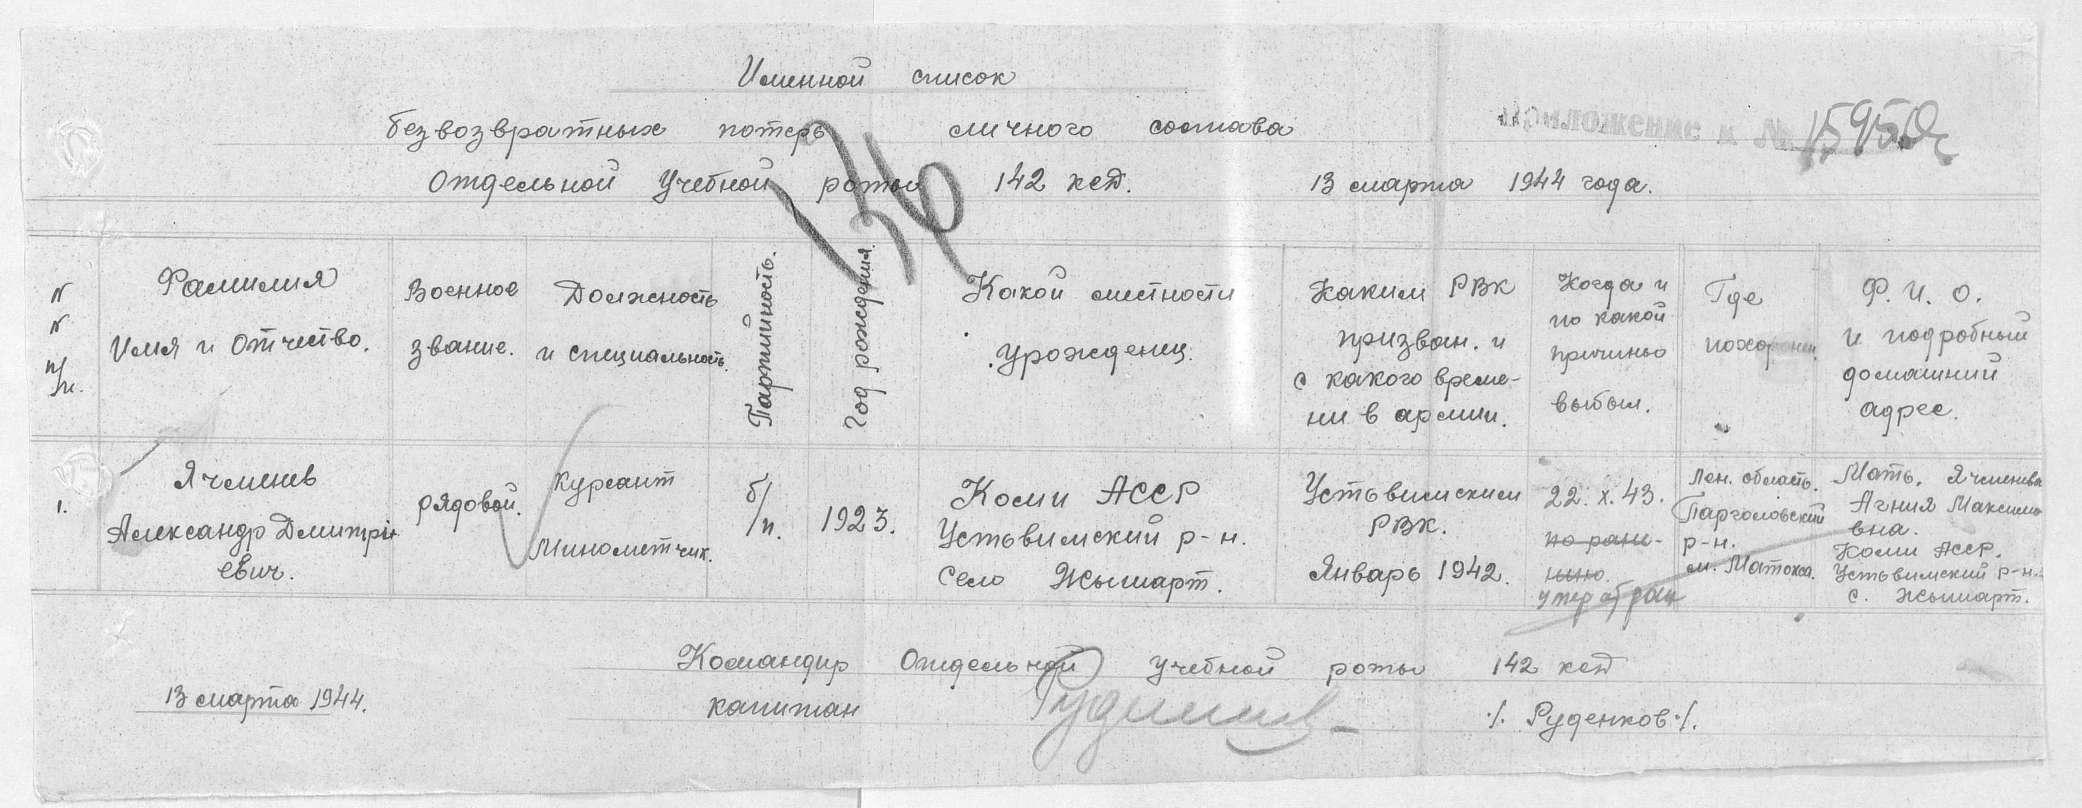 Именной список
безвозвратных потерь личного состава
Приложение к № 15950с
Отдельной Учебной роты 142 ксд. 13 марта 1944 года.
136
N N п/п.
Фамилия
Имя и Отчество.
Военное
звание.
Должность
и специальность.
Партийность.
Год рождения.
Какой местности
урожденец.
Каким РВК
призван. и
с какого време-
ни в армии.
Когда и
по какой
причине
выбыл.
Где
похоронен.
Ф. И. О.
и подробный
домашний
адрес.
1.
Ячменев
Александр Дмитри
евич.
рядовой.
Курсант
Минометчик.
б/п.
1923.
Коми АССР
Устьвимский р-н.
село Жышарт.
Устьвимским
РВК.
Январь 1942.
22. X. 43.
по ране-
нию.
умер от ран
Лен. область.
Парголовский
р-н.
м. Матокса.
Мать. Ячменева
Агния Максимо
вна.
Коми АССР.
Устьвимский р-н.
с. Жышарт.
Командир Отдельной учебной роты 142 ксд
13 марта 1944.
капитан ./. Руденков ./.